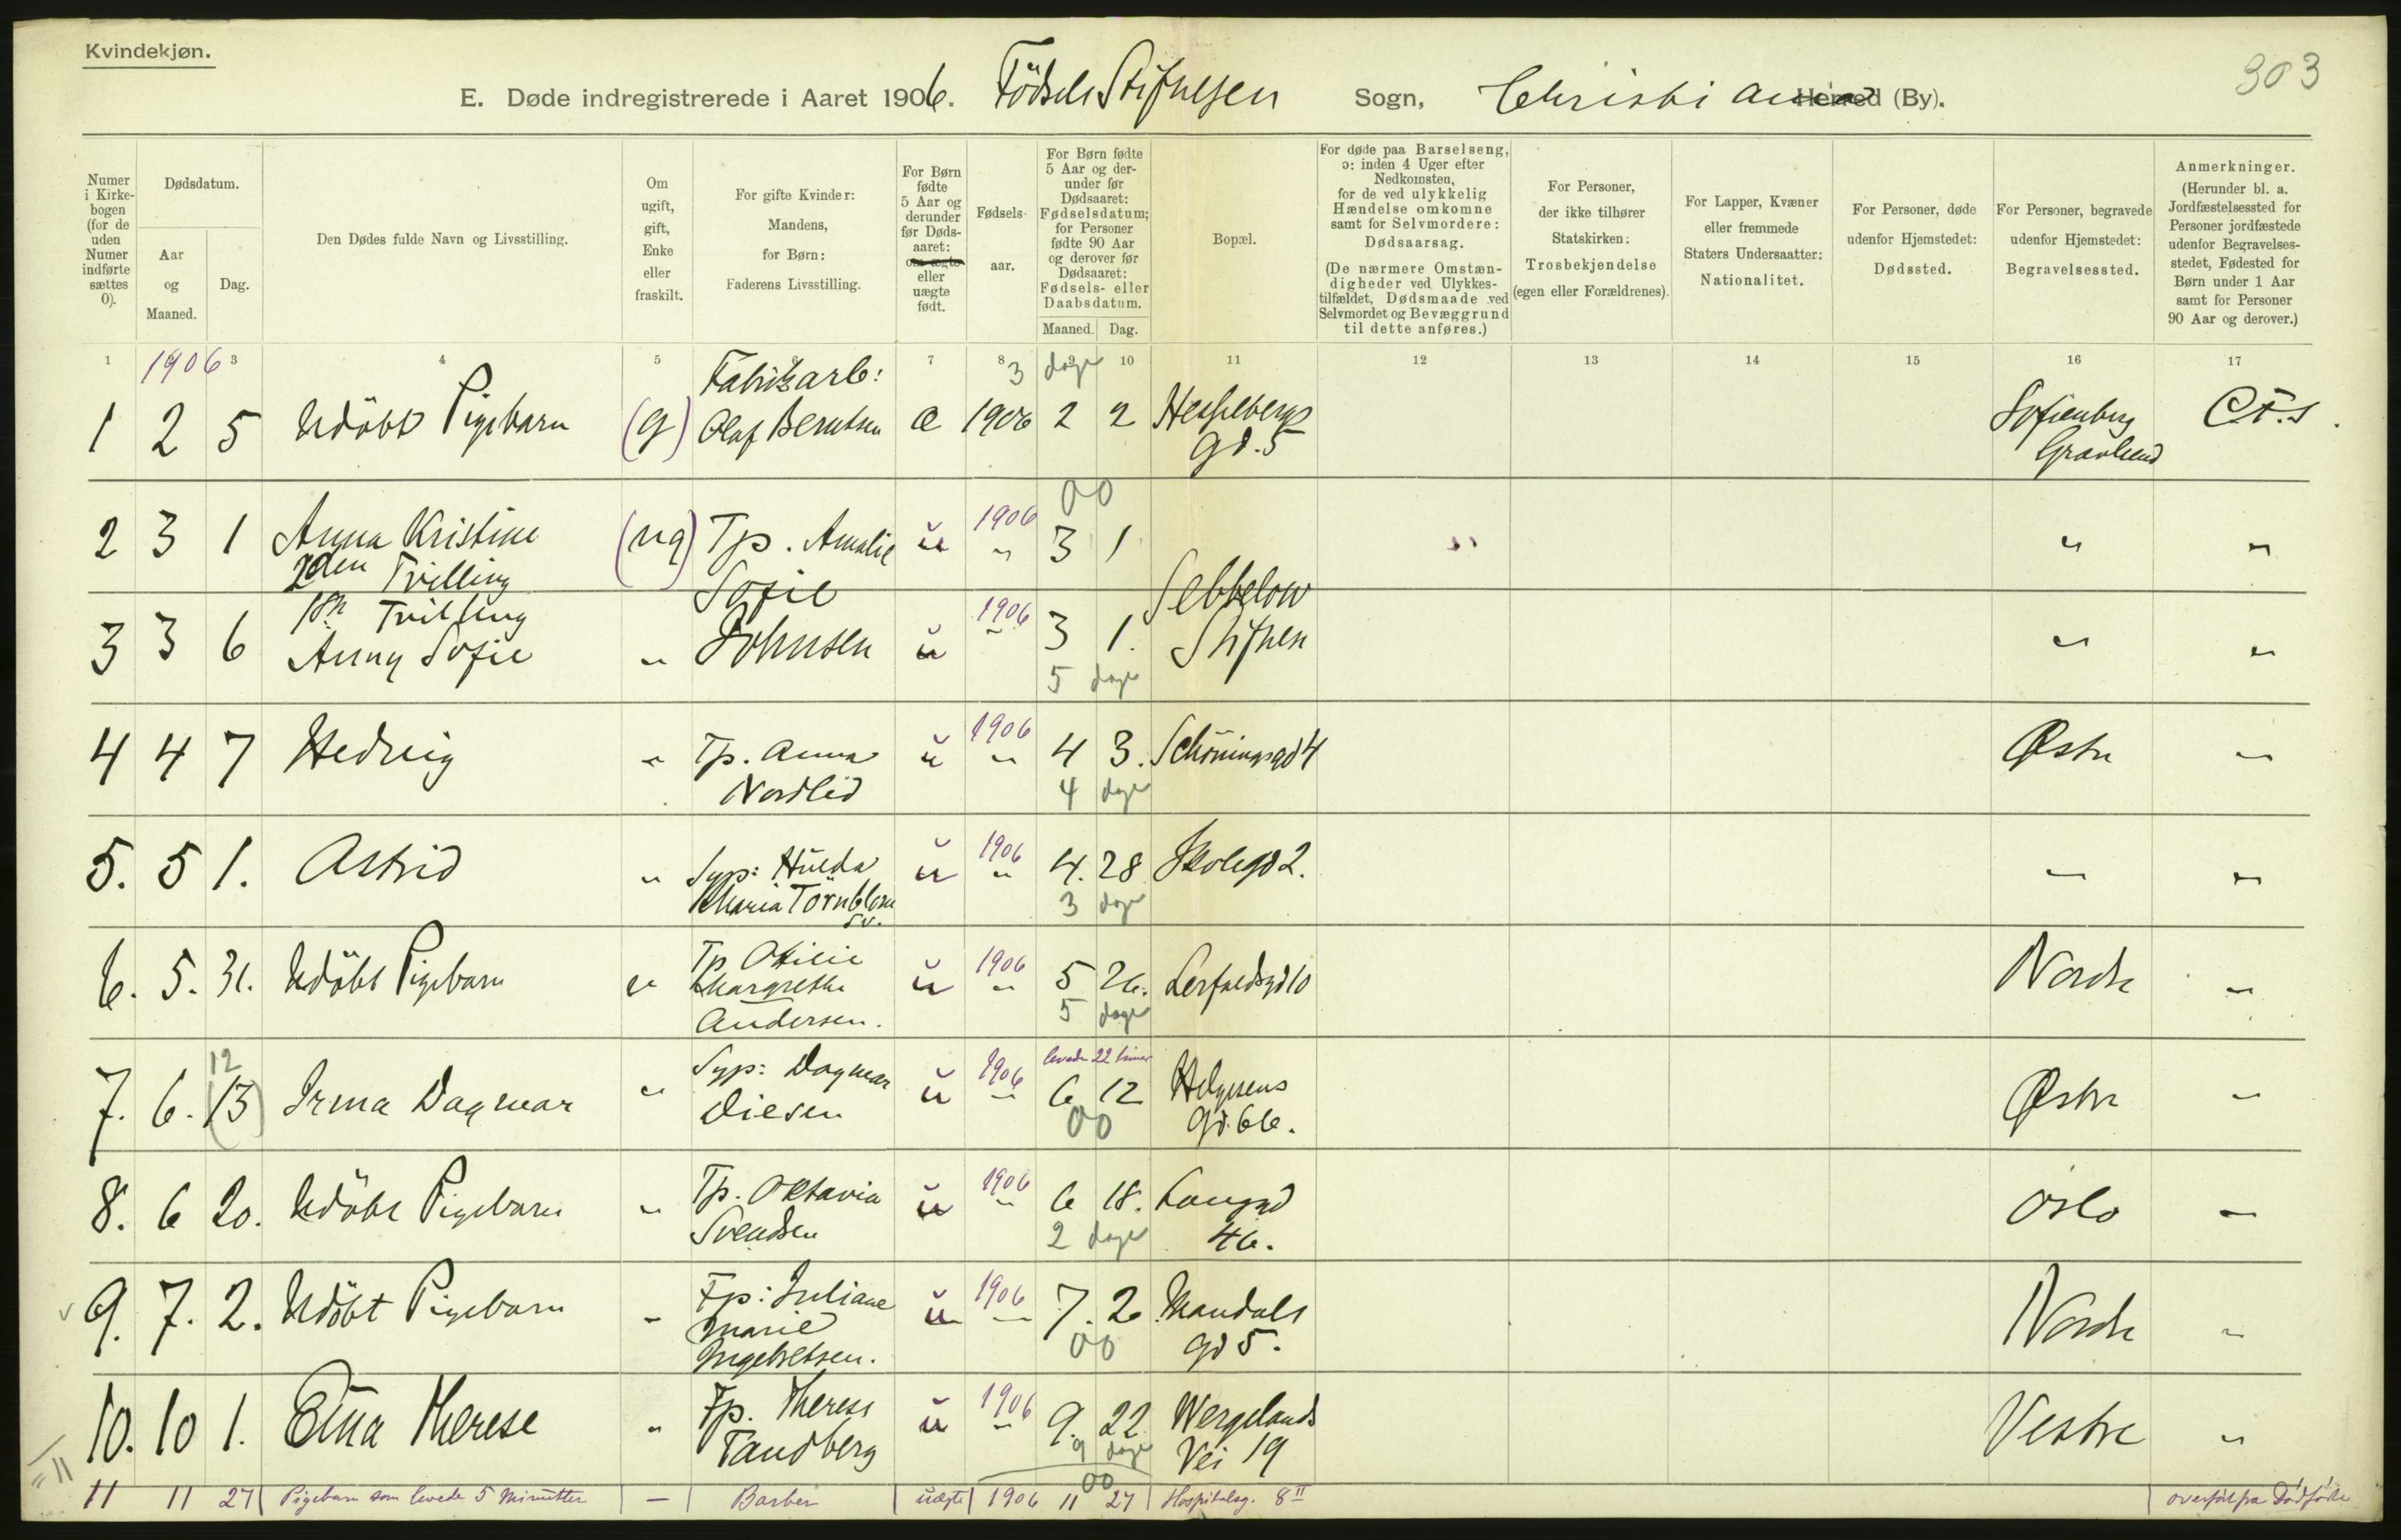 Kvindekjøn.
303
E. Døde indregistrerede i Aaret 1906. Födsels Stiftelsen Sogn, Christiania Herred (By).
Numer i Kirkebogen (for de uden Numer indførte sættes 0).
Dødsdatum.
Aar og Maaned.
Dag.
Den Dødes fulde Navn og Livsstilling.
Om ugift, gift, Enke eller fraskilt.
For gifte Kvinder: Mandens, for Børn: Faderens Livsstilling.
For Børn fødte 5 Aar og derunder før Dødsaaret: om ægte eller uægte født.
Fødselsaar.
For Børn fødte 5 Aar og derunder før Dødsaaret: Fødselsdatum; for Personer fødte 90 Aar og derover før Dødsaaret: Fødsels- eller Daabsdatum.
Maaned. Dag.
Bopæl.
For døde paa Barselseng, ɔ: inden 4 Uger efter Nedkomsten, for de ved ulykkelig Hændelse omkomne samt for Selvmordere: Dødsaarsag.
(De nærmere Omstændigheder ved Ulykkestilfældet, Dødsmaade ved Selvmordet og Bevæggrund til dette anføres.)
For Personer, der ikke tilhører Statskirken: Trosbekjendelse (egen eller Forældrenes).
For Lapper, Kvæner eller fremmede Staters Undersaatter: Nationalitet.
For Personer, døde udenfor Hjemstedet: Dødssted.
For Personer, begravede udenfor Hjemstedet: Begravelsessted.
Anmerkninger.
(Herunder bl. a. Jordfæstelsessted for Personer jordfæstede udenfor Begravelsesstedet, Fødested for Børn under 1 Aar samt for Personer 90 Aar og derover.)
1 2 3 4 5 6 7 8 9 10 11 12 13 14 15 16 17
1906 3 dage
1 2 5 Udöbt Pigebarn (g) Fabrikarb: Olaf Berntsen æ 1906 2 2 Hesselbergs gd. 5 Sofienberg Gravlund C F. S.
00
2 3 1 Anna Kristine 2den Tvilling (ug) Tp. Amalie Sofie ŭ 1906 " 3 1 " " "
3 3 6 1ste Tvilling Anny Sofie " Johnsen ŭ 1906 " 3 1. Sebbelow Stiftelse " "
5 dage
4 4 7 Hedvig " Tp. Anna Nordlid ŭ 1906 " 4 3. Schöningsgd 4 Østre "
4 dage
5. 5 1. Astrid " Syp: Hulda Maria Törnblom sv. ŭ 1906 " 4. 28 Skolegd 2. " "
3 dage
6. 5. 31. Udöbt Pigebarn " Tp Otilie Margrethe Andersen. ŭ 1906 " 5 26. Lerfaldsgd 10 Nordre "
5 dage
7. 6. (13) 12 Irma Dagmar " Syp: Dagmar Diesen ŭ 1906 " levede 22 timer 6 12 Helgesens gd. 66. Østre "
00
8. 6 20. Udöbt Pigebarn " Tp. Oktavia Svendsen ŭ 1906 " 6 18. Langgd 46. Oslo "
2 dage
9. 7. 2. Udöbt Pigebarn " Fp: Juliane Marie Ingebretsen. ŭ 1906 " 7. 2 Mandals gd 5. Nordre "
00
10. 10 1. Edna Therese " Fp. Therese Tandberg ŭ 1906 " 9. 22 Wergelands Vei 19 Vestre "
9 dage
00
= 11
11 11 27 Pigebarn som levede 5 Minutter — Barber uægte 1906 11 27 Hospitalsg. 8 II overført fra Dødfødte